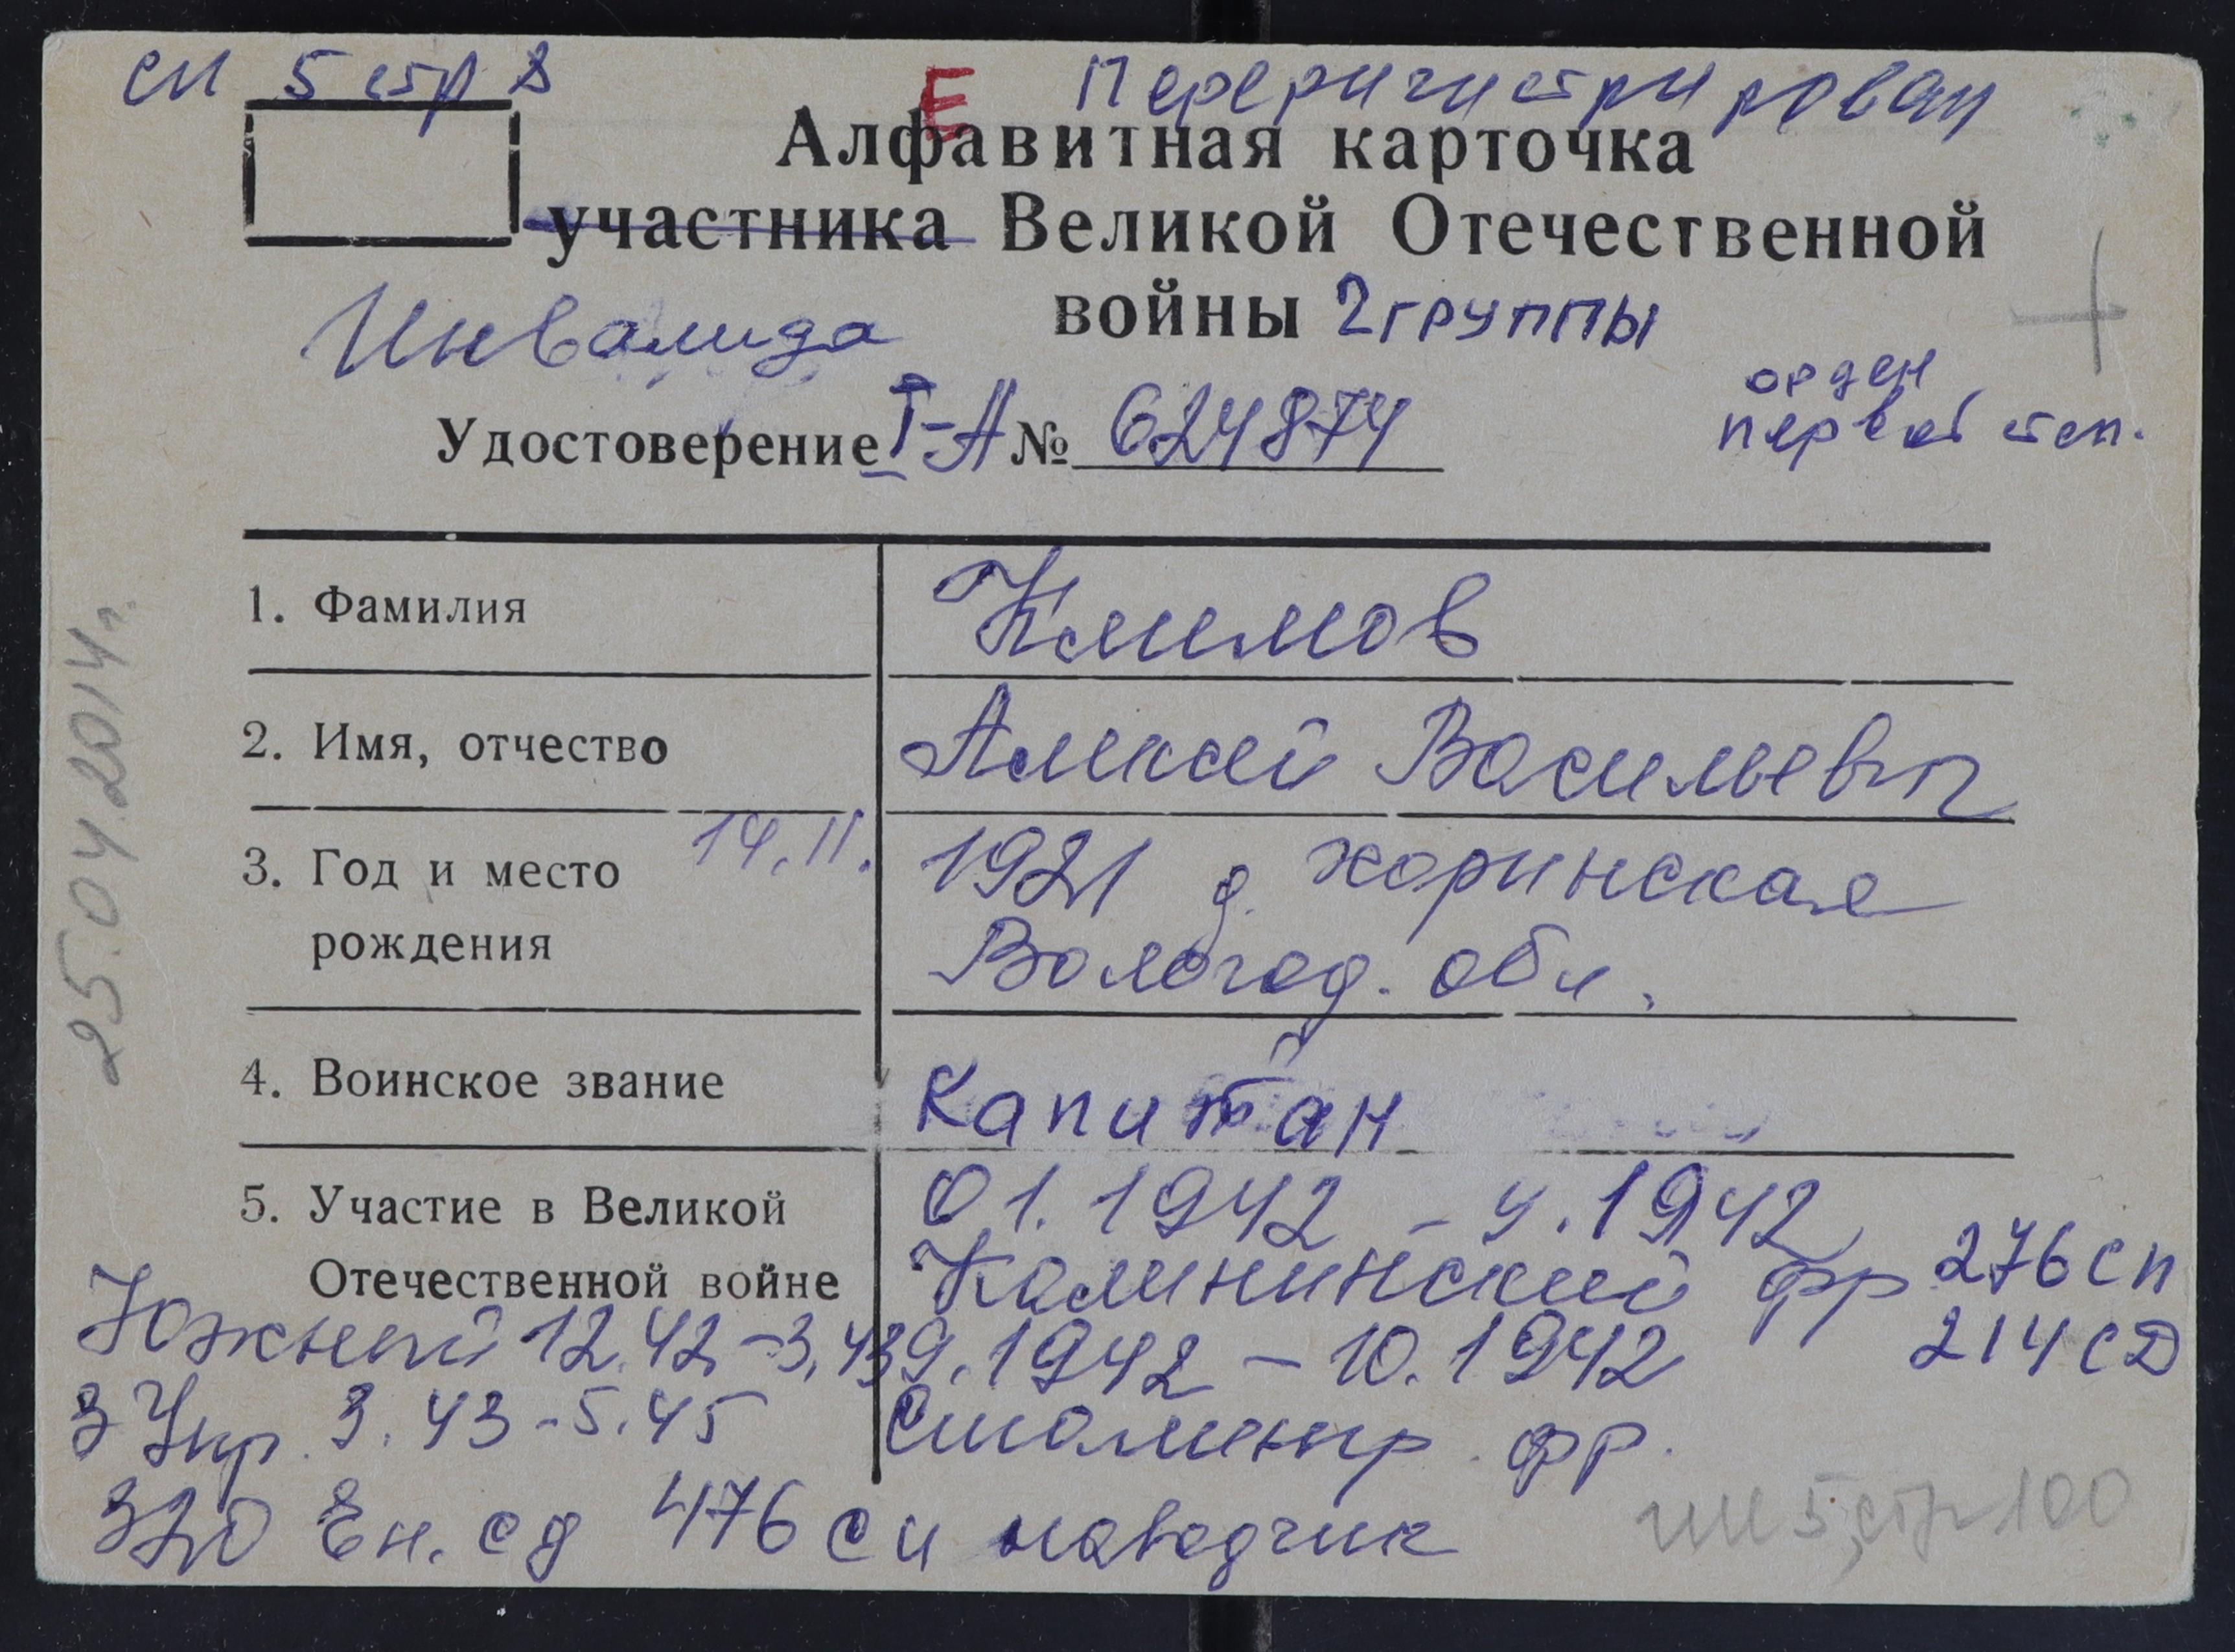 сп 5 стр 8
Е Переригистрирован
Алфавитная карточка
участника Великой Отечественной
войны 2 группы
Инвалида
орден
первой степ.
Удостоверение I-А № 624874
1. Фамилия Климов
2. Имя, отчество Алексей Васильевич
3. Год и место 14.11. 1921 д. Хоринская
рождения Вологод. обл.
4. Воинское звание Капитан
5. Участие в Великой 01.1942 - 4.1942
Отечественной войне Калининский фр 276 сп
Южный 12.42-3.43 9.1942 - 10.1942 214 СД
3 Укр. 3.43-5.45 Сталингр. фр.
320 Ен. сд 476 сп наводчик
5, стр 100
25.04.2014 г.